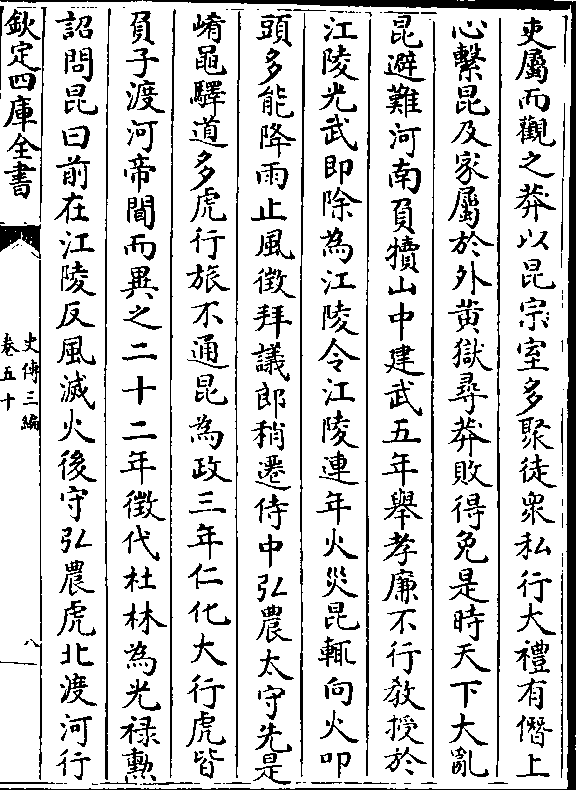 吏屬而觀之莽以昆宗室多聚徒衆私行大禮有僭上
心繫昆及家屬於外黄獄尋莽敗得免是時天下大亂
昆避難河南負犢山中建武五年舉孝廉不行教授於
江陵光武即除為江陵令江陵連年火災昆輒向火叩
頭多能降雨止風徴拜議郎稍遷侍中弘農太守先是
崤黽驛道多虎行旅不通昆為政三年仁化大行虎皆
負子渡河帝聞而異之二十二年徴代杜林為光祿勲
詔問昆曰前在江陵反風滅火後守弘農虎北渡河行
欽定四庫全書
史傳三編
卷五十
八